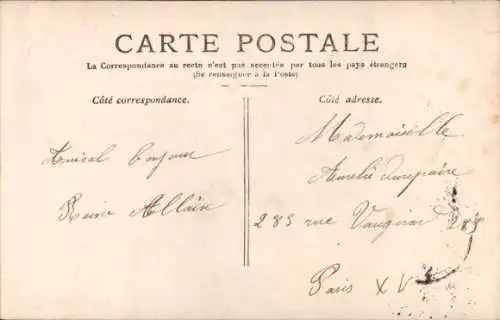 CARTE POSTALE
La Correspondance au recto n'est pas acceptée par tous les pays étrangers
(Se renseigner à la Poste)
Côté correspondance.
Côté adresse.
Amical bonjour
Reine Allain
Mademoiselle
Aurélie Durepaire
283 rue Vaugirard 283
Paris XV